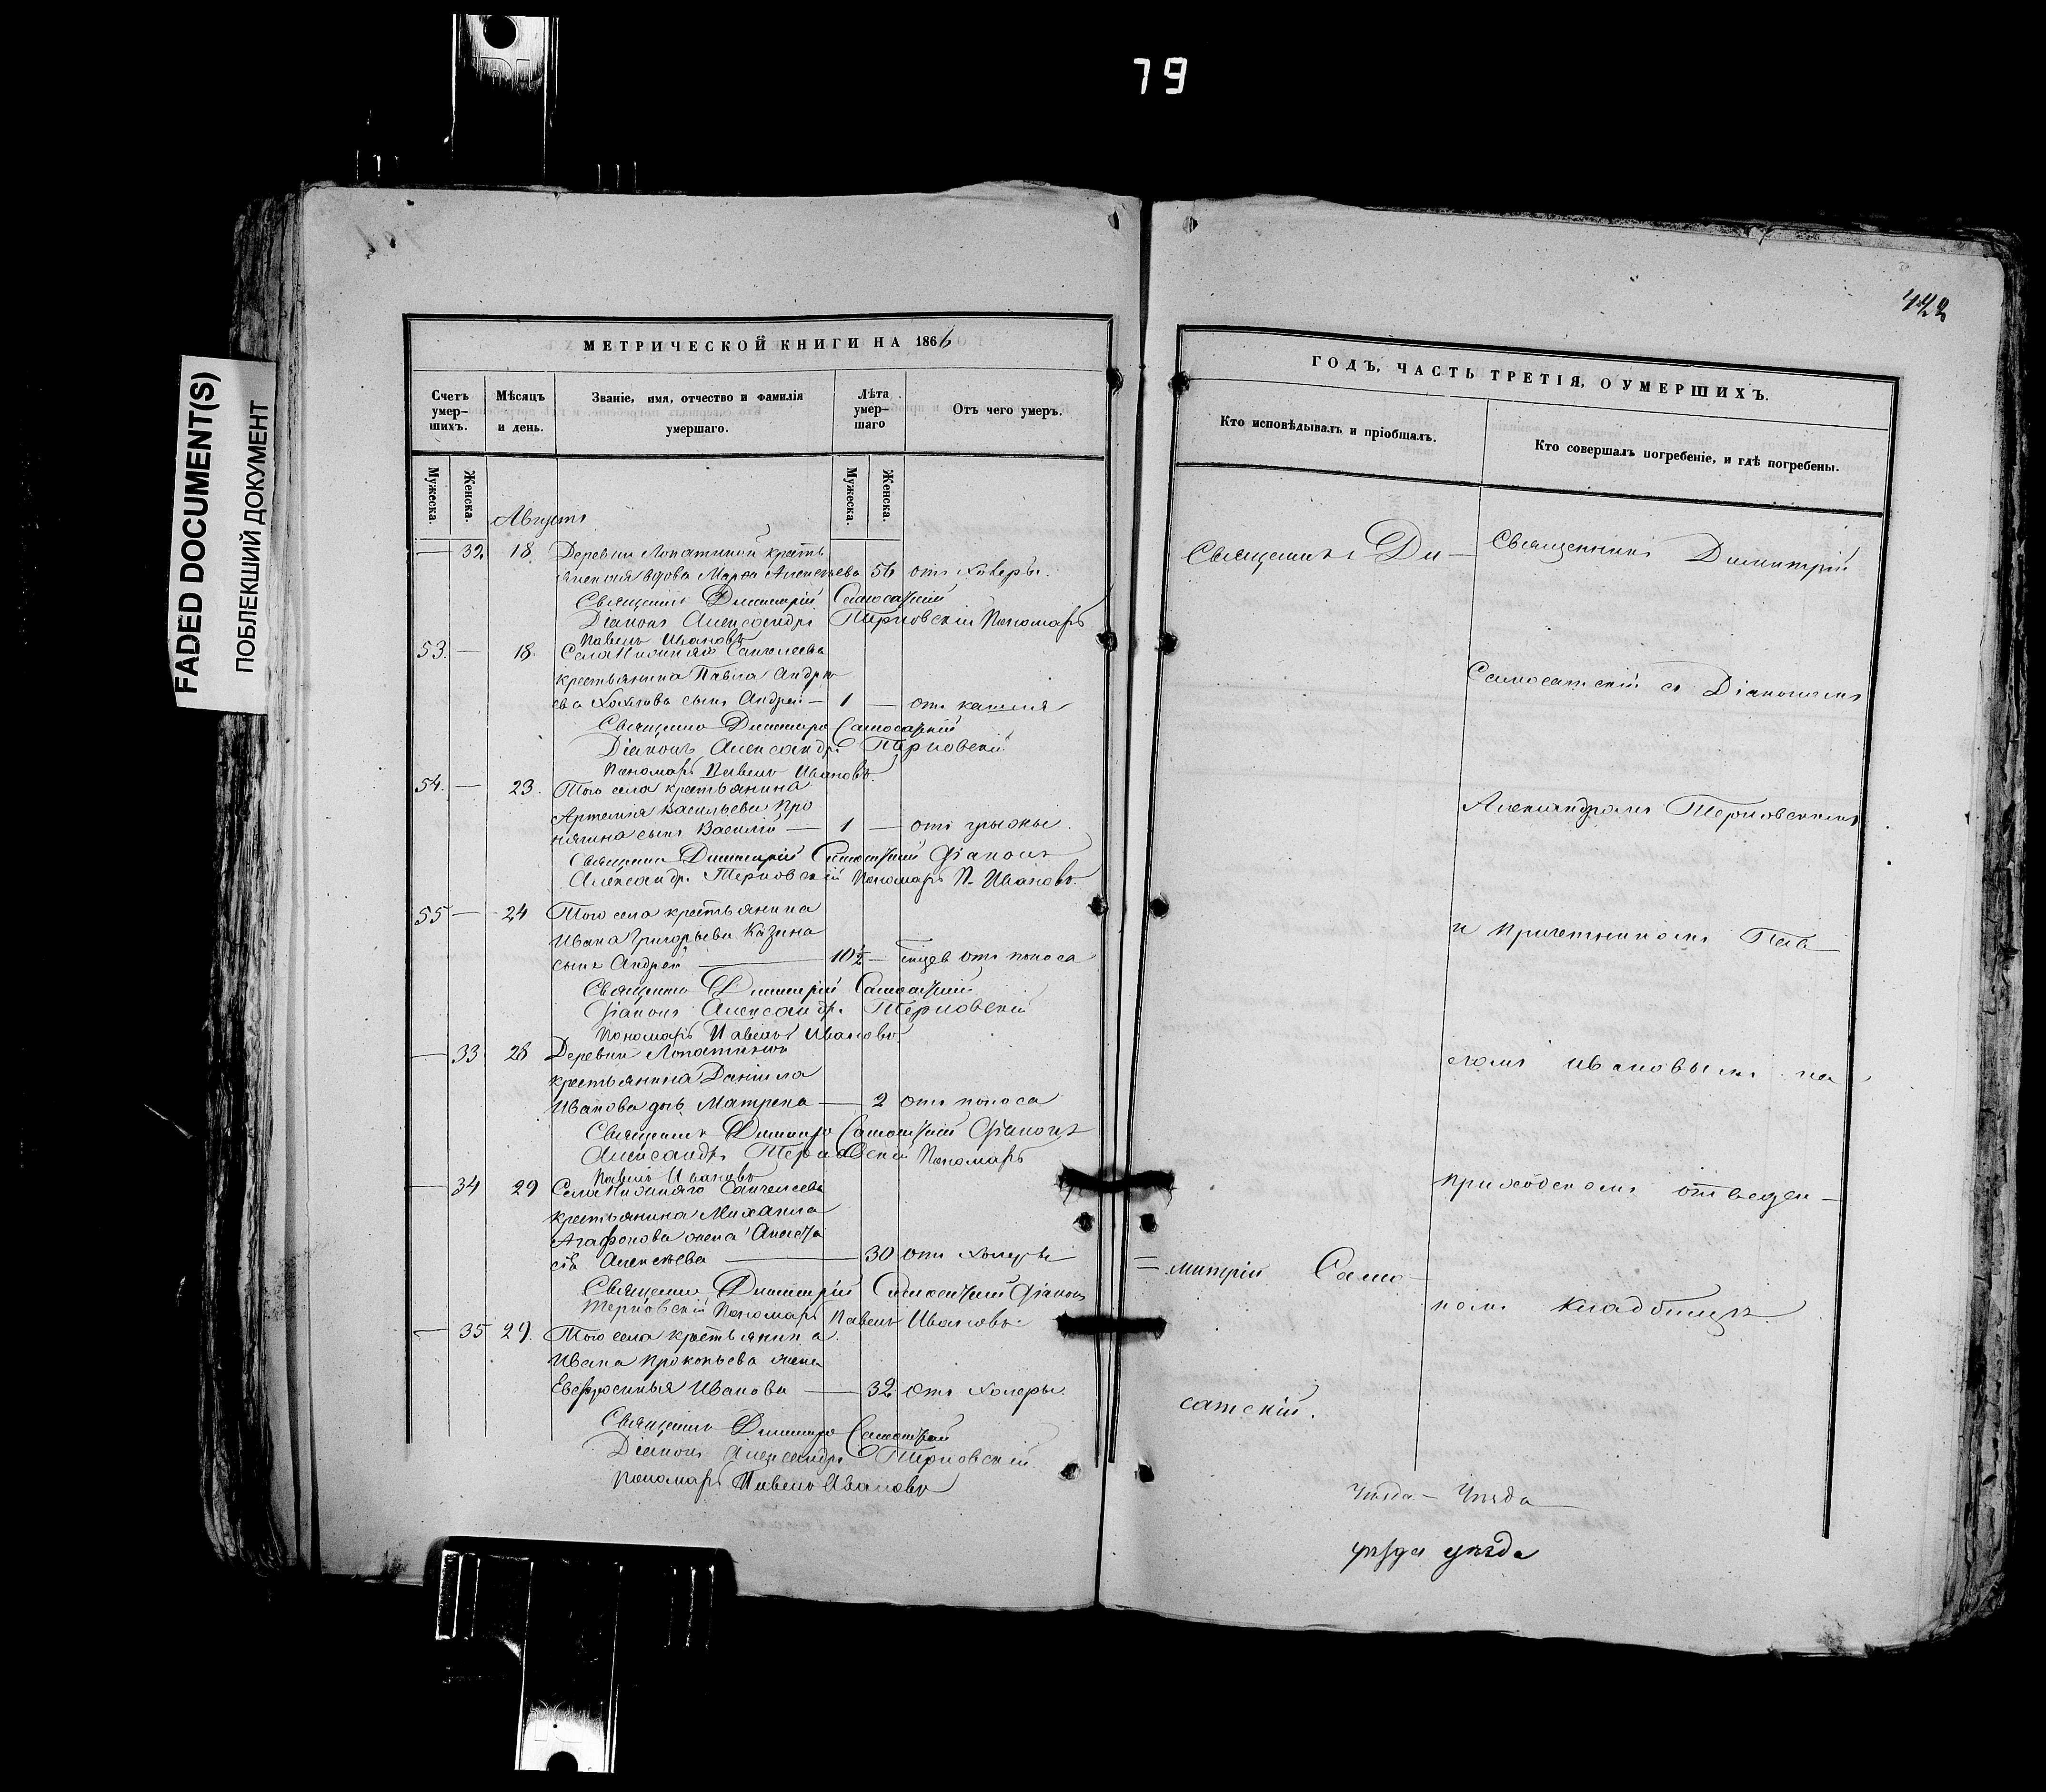 79
FADED DOCUMENT(S)
ПОБЛЕКШИЙ ДОКУМЕНТ
МЕТРИЧЕСКОЙ КНИГИ НА 1866
Счетъ умер-
шихъ.
Мѣсяцъ
и день.
Званіе, имя, отчество и фамилія
умершаго.
Лѣта
умер-
шаго
Отъ чего умеръ.
Мужеска.
Женска.
Мужеска.
Женска.
Августъ
— 32 18 Деревни Лопатиной кресть
янская вдова Марѳа Алексѣева 56 отъ холеры.
Священникъ Димитрій Самосатскій
Діаконъ Александръ Терновскій Пономарь
Павелъ Ивановъ
53. — 18. Села Нижняго Санчелеева
крестьянина Павла Андрѣ
ева Хохлова сынъ Андрей — 1 — отъ кашля
Священикъ Димитрій Самосатскій
Діаконъ Александръ Терновскій
Пономарь Павелъ Ивановъ.
54. — 23. Того села крестьянина
Артемія Васильева Про
нягина сынъ Василій — 1 — отъ грыжи.
Священикъ Димитрій Самосатскій Діаконъ
Александръ Терновскій Пономарь П. Ивановъ.
55 — 24 Того села крестьянина
Ивана Григорьева Казина
сынъ Андрей — 10½ — мѣсяцев отъ поноса
Священикъ Димитрій Самосатскій
Діаконъ Александръ Терновскій
Пономарь Павелъ Ивановъ
— 33 28 Деревни Лопатиной
крестьянина Даніила
Иванова дочь Матрена — 2 отъ поноса
Священикъ Димитрій Самосатскій Діаконъ
Александръ Терновскій Пономарь
Павелъ Ивановъ
— 34 29 Села Нижняго Санчелеева
крестьянина Михаила
Агафонова жена Анаста
сія Алексѣева — 30 отъ холеры
Священикъ Димитрій Самосатскій Діаконъ
Терновскій Пономарь Павелъ Ивановъ.
— 35 29. Того села крестьянина
Ивана Прокопьева жена
Евфросинья Иванова — 32 отъ холеры
Священикъ Димитрій Самосатскій
Діаконъ Александръ Терновскій
Пономарь Павелъ Ивановъ
422
ГОДЪ, ЧАСТЬ ТРЕТІЯ, О УМЕРШИХЪ.
Кто исповѣдывалъ и пріобщалъ.
Кто совершалъ погребеніе, и гдѣ погребены.
Священникъ Ди-
=митрій Само-
сатскій.
Священникъ Димитрій
Самосатскій съ Діакономъ
Александромъ Терновскимъ
и причетникомъ Пав-
ломъ Ивановымъ на
приходскомъ отведен-
номъ кладбищѣ.
уѣзда уѣзда